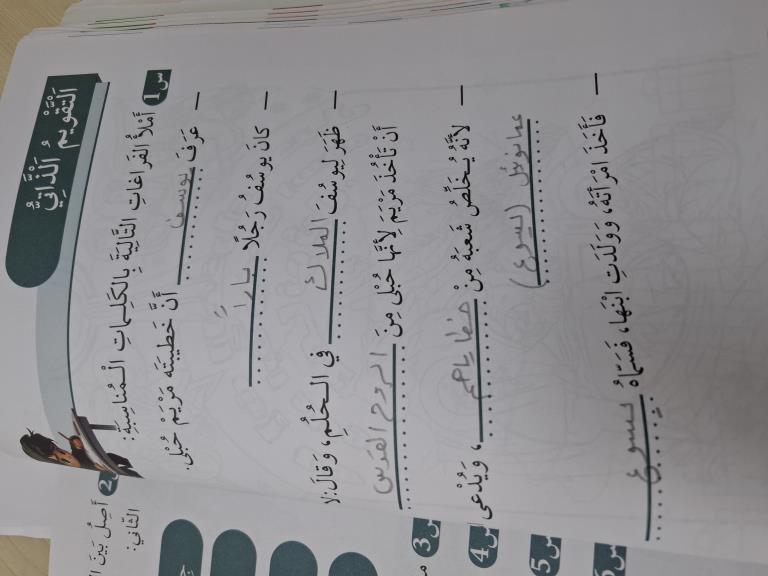 التَّقْوِيمُ الذَّاتِيُّ
س1 أَمْلَأُ الفَرَاغَاتِ التَّالِيَةِ بِالكَلِمَاتِ الْمُنَاسِبَةِ:
– عَرَفَ يوسف أَنَّ خَطِيبَتَه مَرْيَمْ حُبْلى.
– كَانَ يوسُفُ رَجُلًا باراً
– ظَهَرَ لِيوسُفَ الملاك في الـحُلُمِ، وَقَالَ: لا
أَنْ تَأْخُذَ مَرْيَمَ لِأَنَّها حُبْلى مِنَ الروح القدس
– لأَنَّهُ يُخَلِّصُ شَعبَهُ مِنْ خطاياهم، وَيُدْعى
عمانوئيل (يسوع)
– فَأَخَذَ امْرَأَتَهُ، وَوَلَدَتِ ابْنَهَا، فَسَمَّاهُ يسوع
س2 أَصِلُ بَيْنَ
الثّاني:
س3
س4
س5